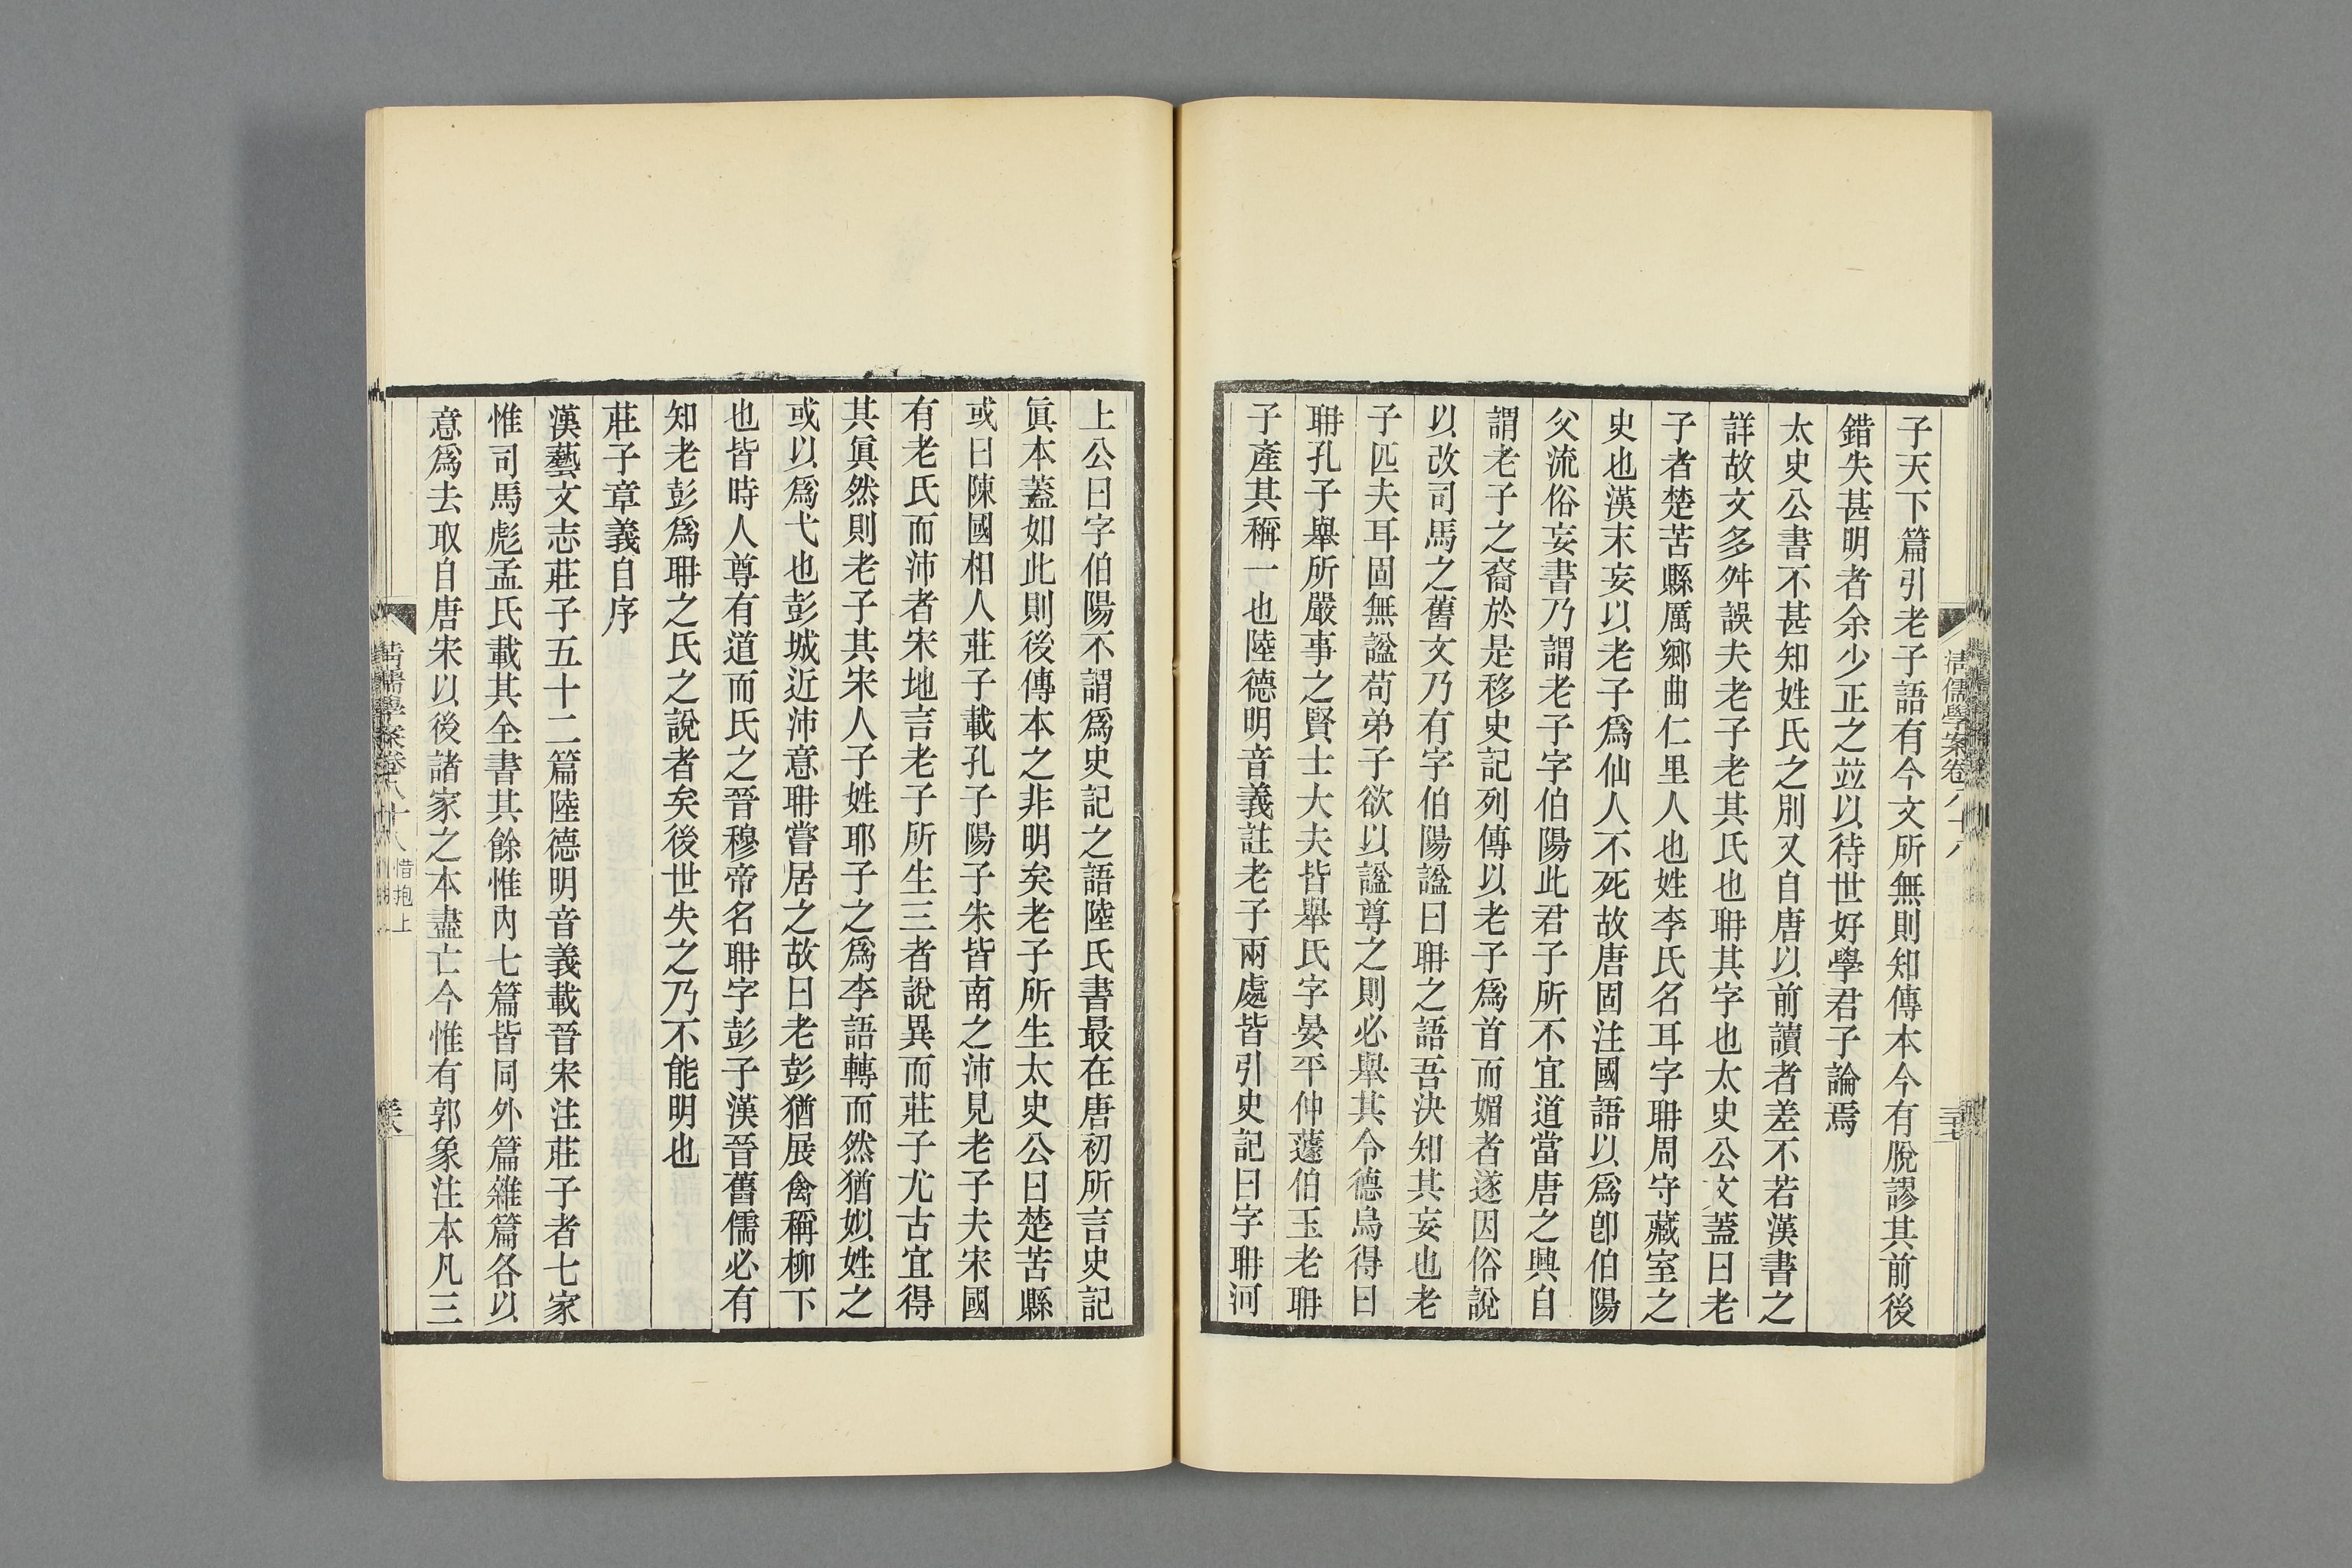 清儒學案卷八十八
子天下篇引老子語有今文所無則知傳本今有脫謬其前後
錯失甚明者余少正之竝以待世好學君子論焉
太史公書不甚知姓氏之別又自唐以前讀者差不若漢書之
詳故文多舛誤夫老子老其氏也聃其字也太史公文蓋曰老
子者楚苦縣厲鄉曲仁里人也姓李氏名耳字聃周守藏室之
史也漢末妄以老子爲仙人不死故唐固注國語以爲卽伯陽
父流俗妄書乃謂老子字伯陽此君子所不宜道當唐之興自
謂老子之裔於是移史記列傳以老子爲首而媚者遂因俗說
以改司馬之舊文乃有字伯陽諡曰聃之語吾決知其妄也老
子匹夫耳固無諡苟弟子欲以諡尊之則必舉其令德烏得曰
聃孔子舉所嚴事之賢士大夫皆舉氏字晏平仲蘧伯玉老聃
子產其稱一也陸德明音義註老子兩處皆引史記曰字聃河
上公曰字伯陽不謂爲史記之語陸氏書最在唐初所言史記
眞本蓋如此則後傳本之非明矣老子所生太史公曰楚苦縣
或曰陳國相人莊子載孔子陽子朱皆南之沛見老子夫宋國
有老氏而沛者宋地言老子所生三者說異而莊子尤古宜得
其眞然則老子其宋人子姓耶子之爲李語轉而然猶姒姓之
或以爲弋也彭城近沛意聃嘗居之故曰老彭猶展禽稱柳下
也皆時人尊有道而氏之晉穆帝名聃字彭子漢晉舊儒必有
知老彭爲聃之氏之說者矣後世失之乃不能明也
莊子章義自序
漢藝文志莊子五十二篇陸德明音義載晉宋注莊子者七家
惟司馬彪孟氏載其全書其餘惟內七篇皆同外篇雜篇各以
意爲去取自唐宋以後諸家之本盡亡今惟有郭象注本凡三
清儒學案卷八十八
惜抱上